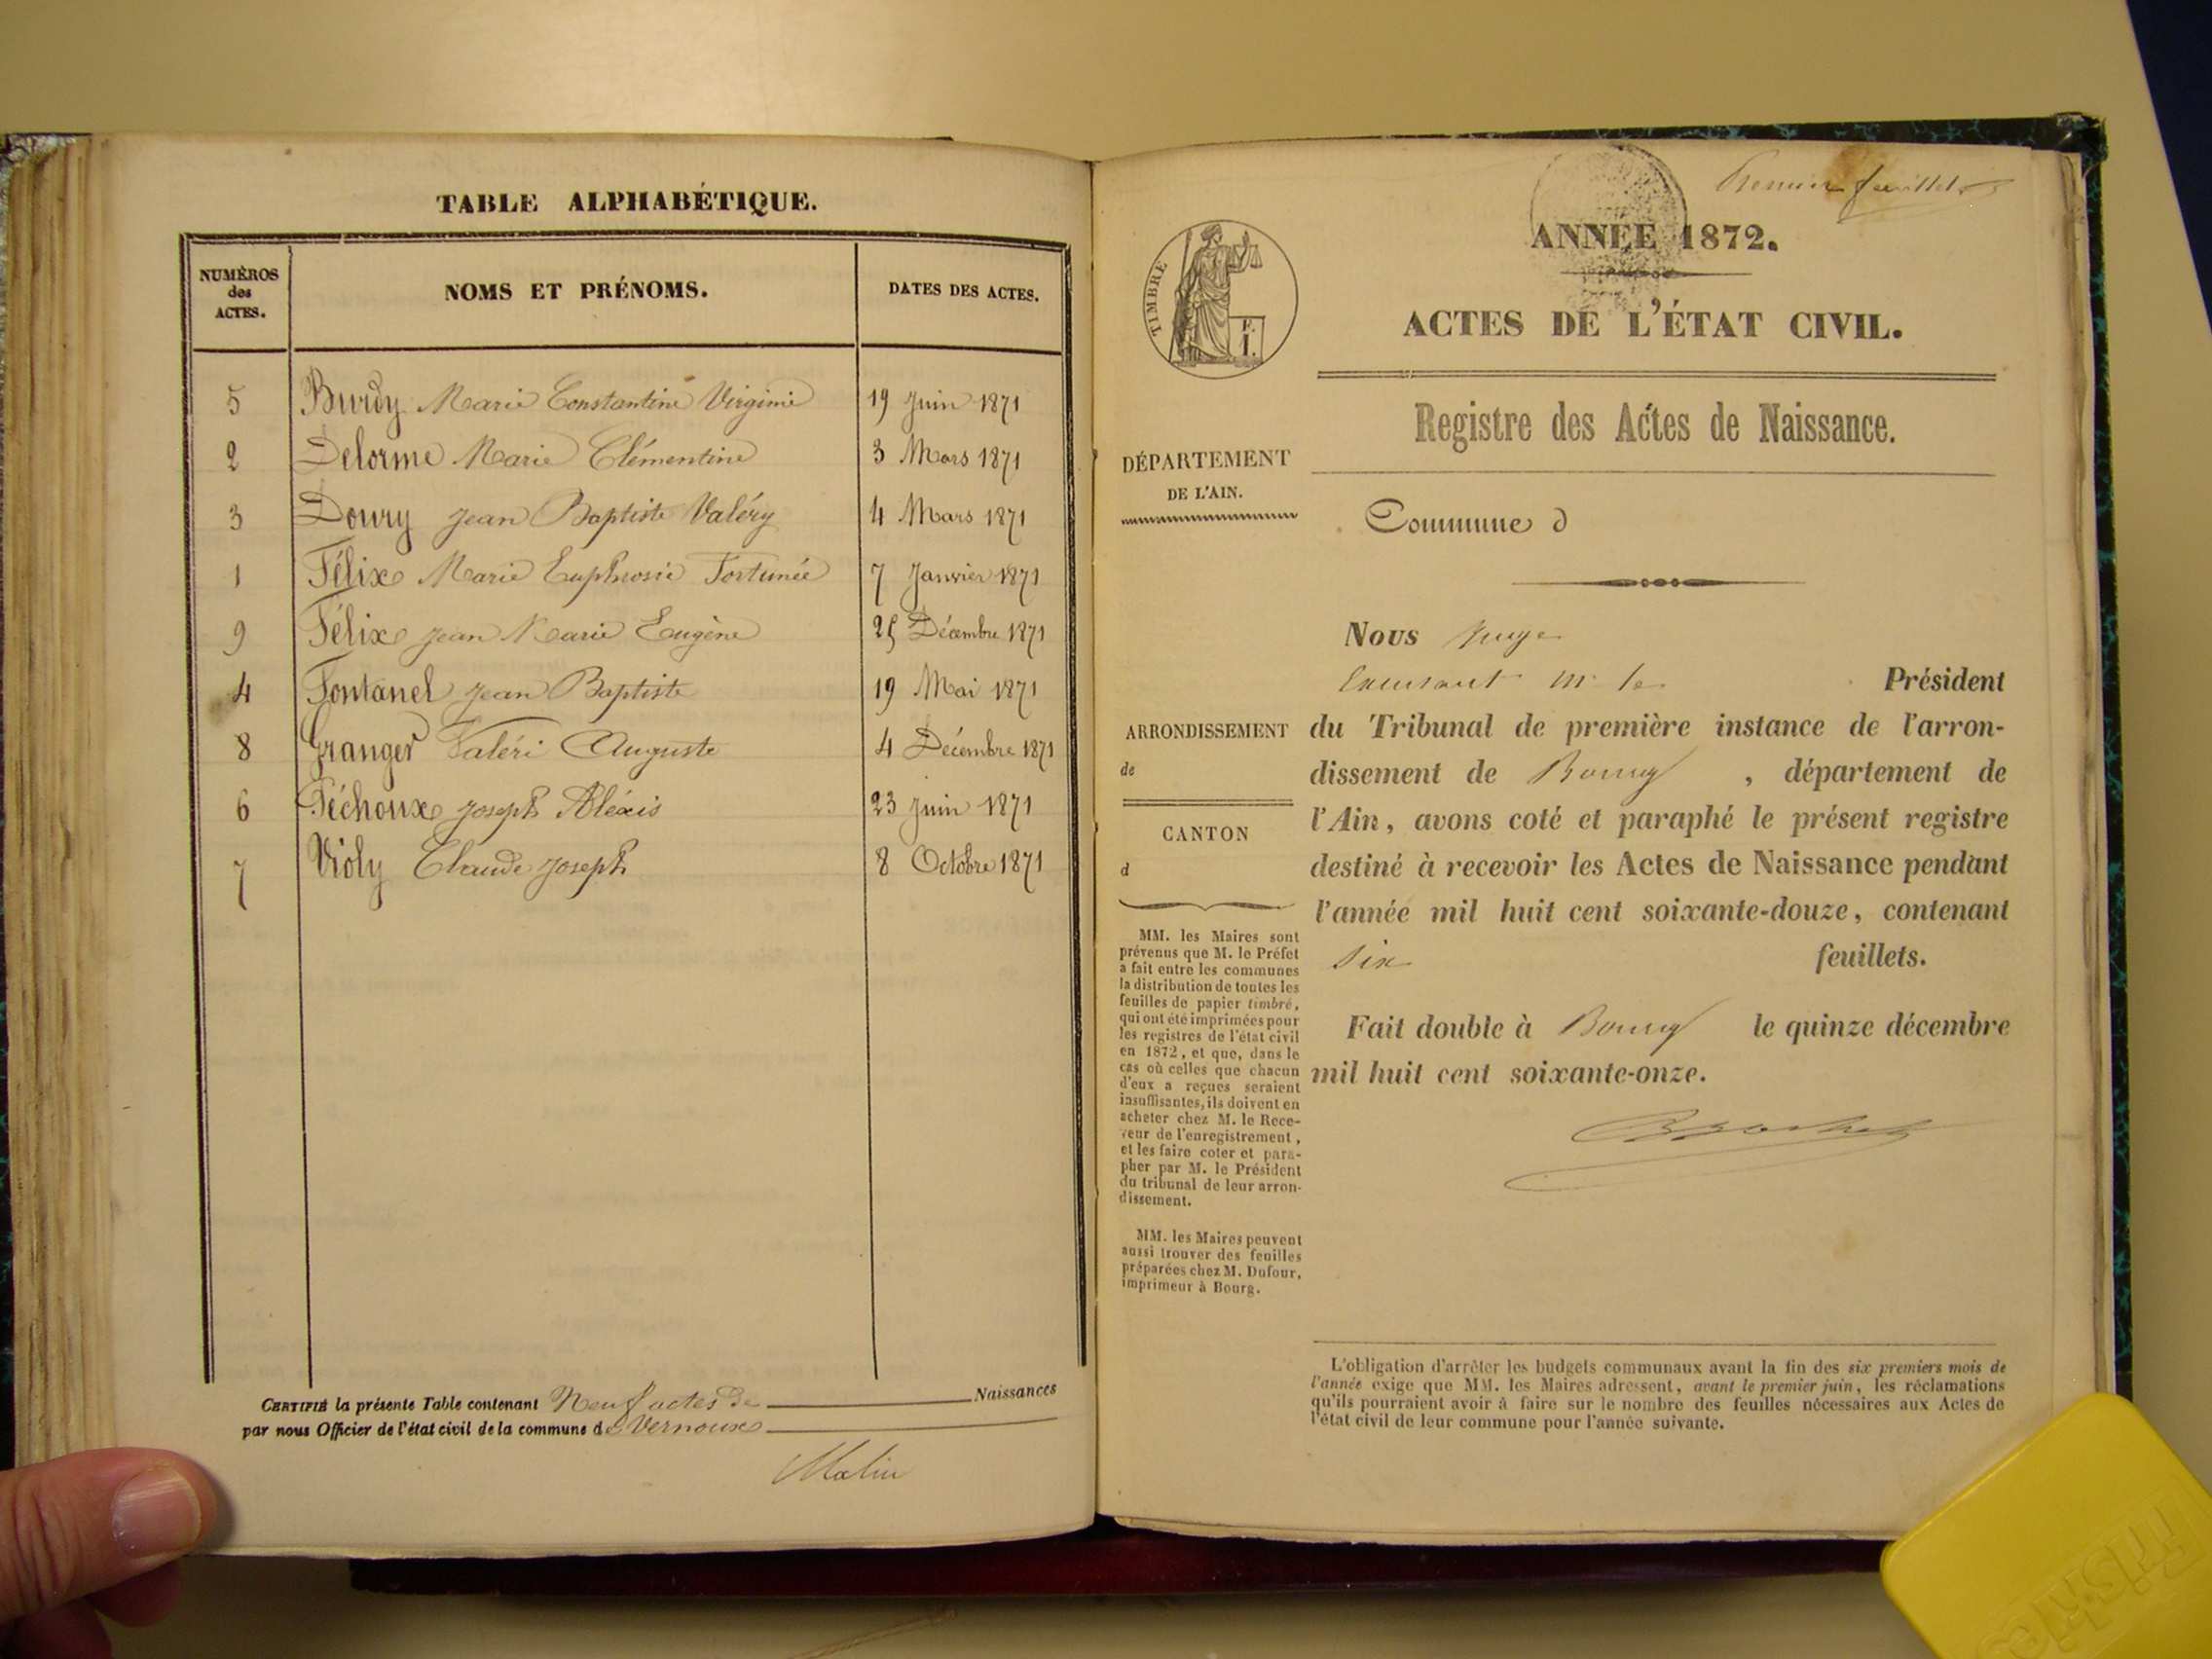 TABLE ALPHABÉTIQUE.
NUMÉROS des ACTES.
NOMS ET PRÉNOMS.
DATES DES ACTES.
5 Burdy Marie Constantine Virginie 19 Juin 1871
2 Delorme Marie Clémentine 3 Mars 1871
3 Doury Jean Baptiste Valéry 4 Mars 1871
1 Félix Marie Euphrosie Fortunée 7 Janvier 1871
9 Félix Jean Marie Eugène 25 Décembre 1871
4 Fontanel Jean Baptiste 19 Mai 1871
8 Granger Valéri Auguste 4 Décembre 1871
6 Péchoux Joseph Aléxis 23 Juin 1871
7 Violy Claude Joseph 8 Octobre 1871
CERTIFIÉ la présente Table contenant Neuf actes de Naissances
par nous Officier de l'état civil de la commune de Vernoux
Premier feuillet
TIMBRE
ANNÉE 1872.
ACTES DE L'ÉTAT CIVIL.
Registre des Actes de Naissance.
DÉPARTEMENT
DE L'AIN.
ARRONDISSEMENT
de
CANTON
d
MM. les Maires sont
prévenus que M. le Préfet
a fait entre les communes
la distribution de toutes les
feuilles de papier timbré,
qui ont été imprimées pour
les registres de l'état civil
en 1872, et que, dans le
cas où celles que chacun
d'eux a reçues seraient
insuffisantes, ils doivent en
acheter chez M. le Rece-
veur de l'enregistrement,
et les faire coter et para-
pher par M. le Président
du tribunal de leur arron-
dissement.
MM. les Maires peuvent
aussi trouver des feuilles
préparées chez M. Dufour,
imprimeur à Bourg.
Commune d
Nous Juge
Président
du Tribunal de première instance de l'arron-
dissement de Bourg, département de
l'Ain, avons coté et paraphé le présent registre
destiné à recevoir les Actes de Naissance pendant
l'année mil huit cent soixante-douze, contenant
six feuillets.
Fait double à Bourg le quinze décembre
mil huit cent soixante-onze.
L'obligation d'arrêter les budgets communaux avant la fin des six premiers mois de
l'année exige que MM. les Maires adressent, avant le premier juin, les réclamations
qu'ils pourraient avoir à faire sur le nombre des feuilles nécessaires aux Actes de
l'état civil de leur commune pour l'année suivante.